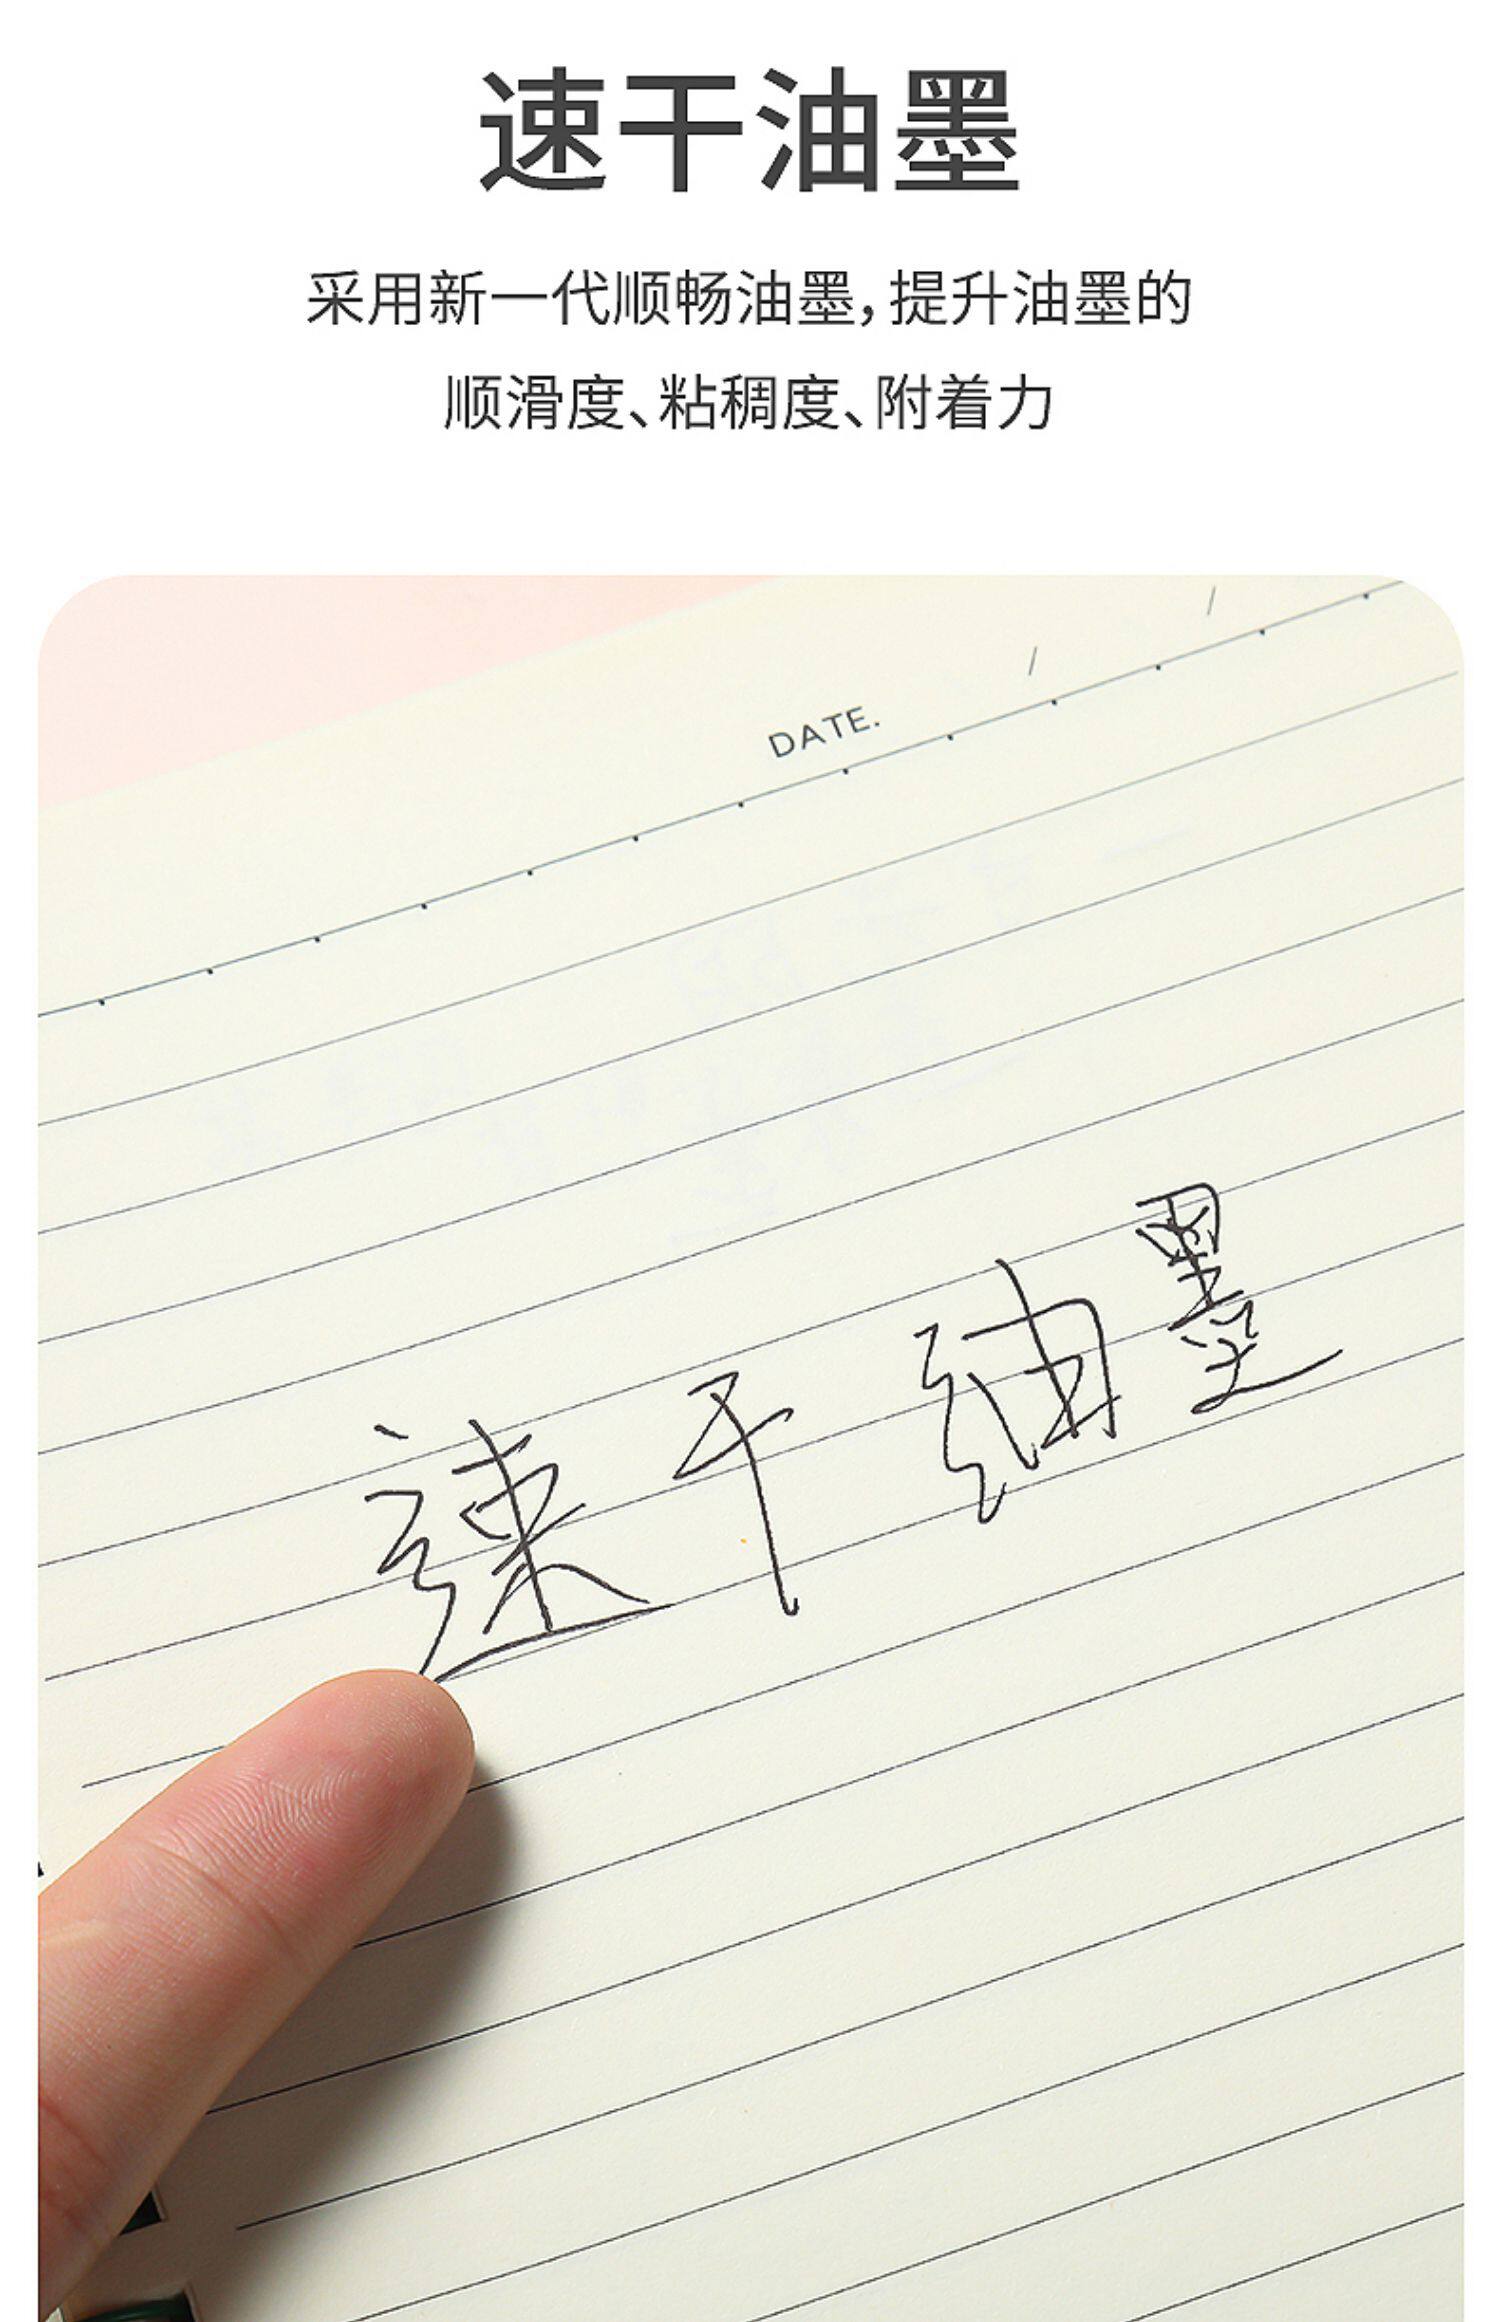 速干油墨
采用新一代顺畅油墨，提升油墨的
顺滑度、粘稠度、附着力
DATE. / /
速干油墨